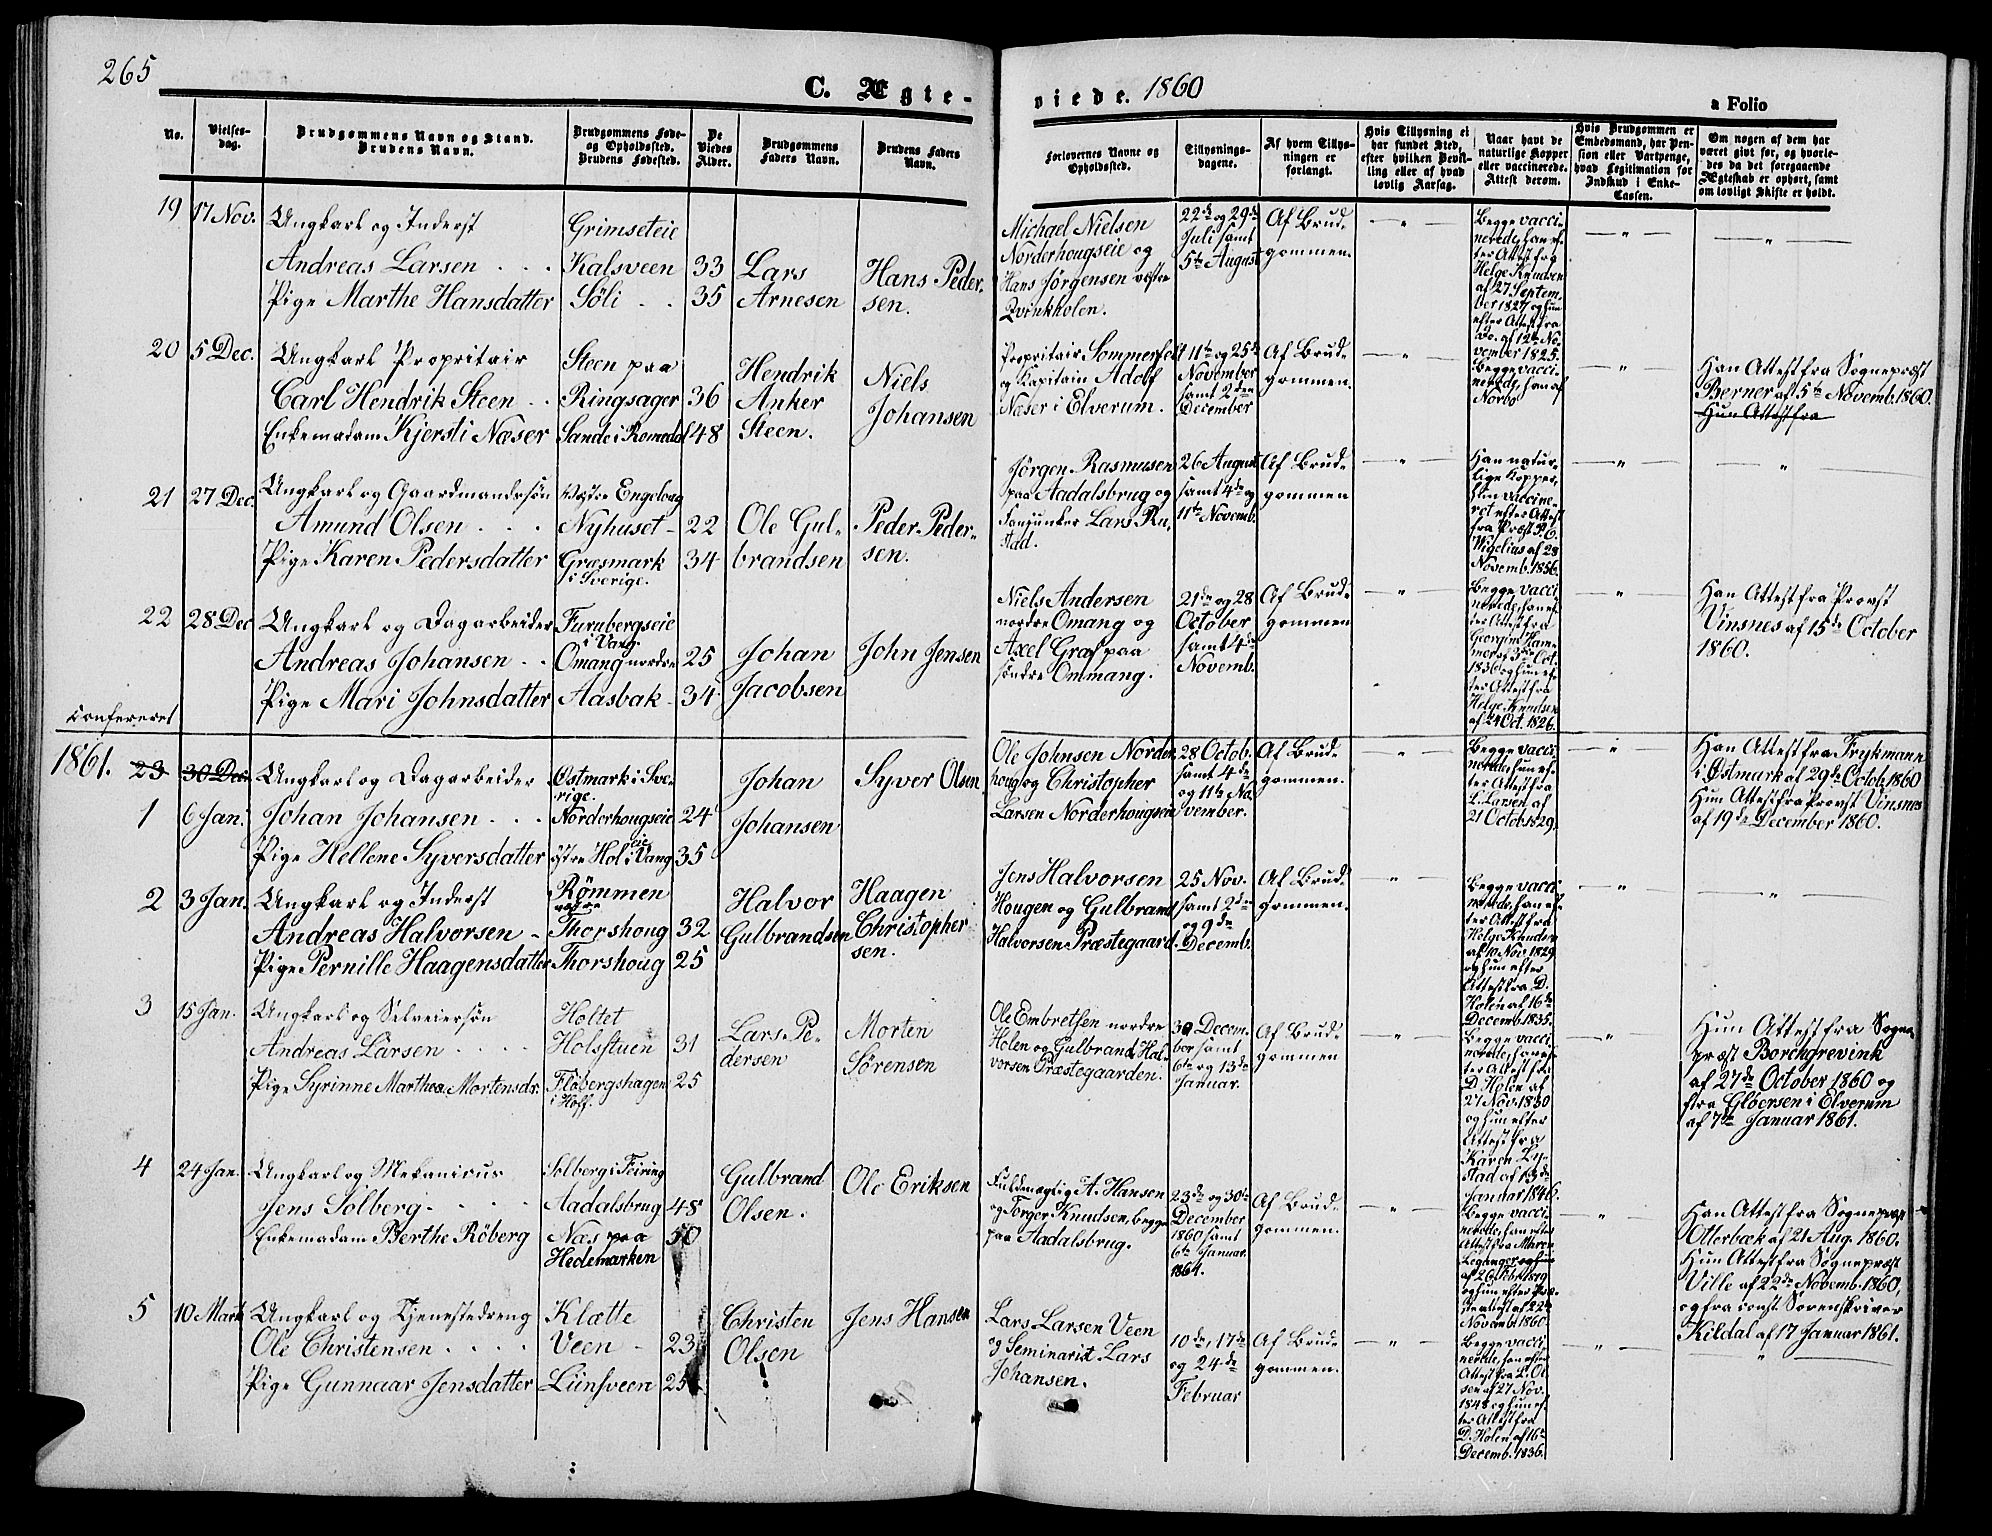 265
C. Ægte-
viede. 1860
a Folio
No.
Vielses-
dag.
Brudgommens Navn og Stand.
Brudens Navn.
Brudgommens Føde-
og Opholdssted.
Brudens Fødested.
De
Viedes
Alder.
Brudgommens
Faders Navn.
Brudens Faders
Navn.
Forlovernes Navne og
Opholdssted.
Tillysnings-
dagene.
Af hvem Tillys-
ningen er
forlangt.
Hvis Tillysning ei
har fundet Sted,
efter hvilken Bevil-
ling eller af hvad
lovlig Aarsag.
Naar havt de
naturlige Kopper
eller vaccinerede.
Attest derom.
Hvis Brudgommen er
Embedsmand, har Pen-
sion eller Vartpenge,
hvad Legitimation for
Indskud i Enke-
Cassen.
Om nogen af dem har
været givt før, og hvorle-
des da det foregaaende
Ægteskab er ophørt, samt
om lovligt Skifte er holdt.
19 17 Nov.
Ungkarl og Inderst
Andreas Larsen . . .
Pige Marthe Hansdatter
Grimseteie
Kalsveen
Söli . .
33
35
Lars
Arnesen
Hans Peder-
sen.
Michael Nielsen
Norderhougseie og
Hans Jörgensen vestre
Qvinkholen.
22de og 29de
Juli samt
5te August
Af Brud-
gommen.
Begge vacci-
nerede, han ef-
ter Attest fra
Helge Knudsen
af 27 Septem-
ber 1827 og hun
efter Attest fra
do. af 12te No-
vember 1825.
20 5 Dec.
Ungkarl Propritair
Carl Hendrik Steen . .
Enkemadam Kjersti Næser
Steen paa
Ringsager
Sande i Romedal
36
48
Hendrik
Anker
Steen.
Niels
Johansen
Propritair Sommerfelt
og Kapitain Adolf
Næser i Elverum.
11te og 25de
November
samt 2den
December
Af Brud-
gommen.
Begge vacci-
nerede, han af
Norbo
Han Attest fra Sognepræst
Berner af 5te Novemb. 1860.
Hun Attest fra
21 27 Dec.
Ungkarl og Gaardmandssön
Amund Olsen . . .
Pige Karen Pedersdatter
Vestre Engelaug
Nyhuset
Græsmark
i Sverige.
22
34
Ole Gul-
brandsen
Peder Peder-
sen.
Jörgen Rasmusen
paa Aadalsbrug og
Fanjunker Lars Ru-
stad.
26 August
samt 4de og
11te Novemb.
Af Brud-
gommen
Han natur-
lige Kopper,
hun vaccine-
ret efter Attest
fra Præst P. C.
Wigelius af 28
Novemb. 1856.
22 28 Dec
Ungkarl og Dagarbeider
Andreas Johansen . .
Pige Mari Johnsdatter
Furubergseie
i Vang.
Omang nordre
Aasbak
25
34
Johan
Jacobsen
John Jensen
Niels Andersen
nordre Omang og
Axel Graf paa
söndre Ommang.
21de og 28
October
samt 4de
Novemb.
Af Brud-
gommen
Begge vacci-
nerede, han ef-
ter Attest fra
Georgine Ham-
mer af 3die Oct.
1836 og hun ef-
ter Attest fra
Helge Knudsen
af 24 Oct. 1826.
Han Attest fra Provst
Vinsnes af 15de October
1860.
Confereret
1861. 23 30 Dec.
1 6 Jan.
Ungkarl og Dagarbeider
Johan Johansen . . .
Pige Hellene Syversdatter
Östmark i Sve-
rige.
Norderhougseie
östre Hol eie i Vang
24
35
Johan
Johansen
Syver Olsen
Ole Johnsen Norder-
houg og Christopher
Larsen Norderhougseie
28 Octob.
samt 4de
og 11te No-
vember.
Af Brud-
gommen.
Begge vacci-
nerede, hun ef-
ter Attest fra
L. Larsen af
21 Octob. 1829.
Han Attest fra Frykmann
i Östmark af 29de Octob. 1860
Hun Attest fra Provst Vinsnes
af 19de December 1860.
2 3 Jan.
Ungkarl og Inderst
Andreas Halvorsen
Pige Pernille Haagensdatter
Römmen
vestre
Thorshoug
Thorshoug
32
25
Halvor
Gulbrandsen
Haagen
Christopher
sen.
Jens Halvorsen
Hougen og Gulbrand
Halvorsen Præstegaard.
25 Nov.
samt 2den
og 9de
Decemb.
Af Brud-
gommen.
Begge vacci-
nerede, han ef-
ter Attest fra
Helge Knudsen
af 10 Nov. 1829
og hun efter
Attest fra D.
Holen af 16de
Decemb. 1835.
3 15 Jan.
Ungkarl og Selveiersön
Andreas Larsen . . . .
Pige Syrinne Marthea Mortensdr.
Holtet
Holsstuen
Flöbergshagen
i Hoff.
31
25
Lars Pe-
dersen
Morten
Sörensen
Ole Embretsen nordre
Holen og Gulbrand Hal-
vorsen Præstegaarden.
30 Decem-
ber samt
6te og 13de
Januar.
Af Brud-
gommen
Begge vacci-
nerede, han ef-
ter Attest fra
D. Holen af
27 Nov. 1830
og hun efter
Attest fra
Karen Ly-
stad af 13de
Januar 1846.
Hun Attest fra Sogne-
præst Borchgrevink
af 27de October 1860 og
fra Glöersen i Elverum
af 7de Januar 1861.
4 24 Jan.
Ungkarl og Mekanicus
Jens Solberg . . . .
Enkemadam Berthe Röberg
Solberg i Feiring
Aadalsbrug
Næs paa
Hedemarken
48
50
Gulbrand
Olsen.
Ole Eriksen
Fuldmægtig A. Hansen
og Torger Knudsen, begge
paa Aadalsbrug.
23de og 30te
December
1860 samt
6te Januar
1861.
Af Brud-
gommen.
Begge vacci-
nerede, han efter
Attest fra Maren
Leganger og hun
af 26 Feb. 1819
og hun efter Præ-
steattest af 22de
Novemb. 1860.
Han Attest fra Sognepræst
Otterbæk af 21 Aug. 1860.
Hun Attest fra Sognepræst
Ville af 22de Novemb. 1860,
og fra const. Sorenskriver
Kildal af 17 Januar 1861.
5 10 Marts
Ungkarl og Tjenestedreng
Ole Christensen . . . .
Pige Gunnaar Jensdatter
Klætte
Veen
Liinsveen
23
25
Christen
Olsen
Jens Hansen
Lars Larsen Veen
og Seminarist Lars
Johansen.
10de, 17de
og 24de
Februar
Af Brud-
gommen.
Begge vacci-
nerede, han efter
Attest fra L. Ol-
sen af 27 Nov.
1848 og hun ef-
ter Attest fra
D. Holen af 16de
Decemb. 1836.